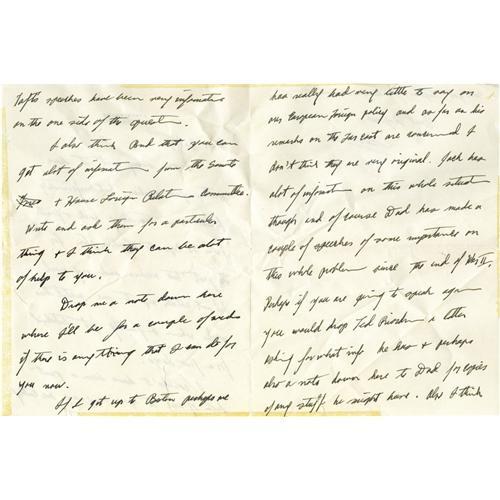 Tafts speeches have been very informative
on the one side of the question.
I also think that you can
get alot of information from the Senate
+ House Foreign Relations Committee.
Write and ask them for a particular
thing + I think they can be alot
of help to you.
Drop me a note down here
where I'll be for a couple of weeks
if there is anything that I can do for
you now.
If I get up to Boston perhaps we
has really had very little to say on
our European foreign policy and as far as his
remarks on the Far East are concerned I
don't think they are very original. Jack has
alot of information on this whole situation
though and of course Dad has made a
couple of speeches of some importance on
this whole problem since the end of War II.
Perhaps if you are going to speak again
you would drop Ted Reardon a letter
asking for what info he has & perhaps
also a note down here to Dad for copies
of any stuff he might have. Also I think